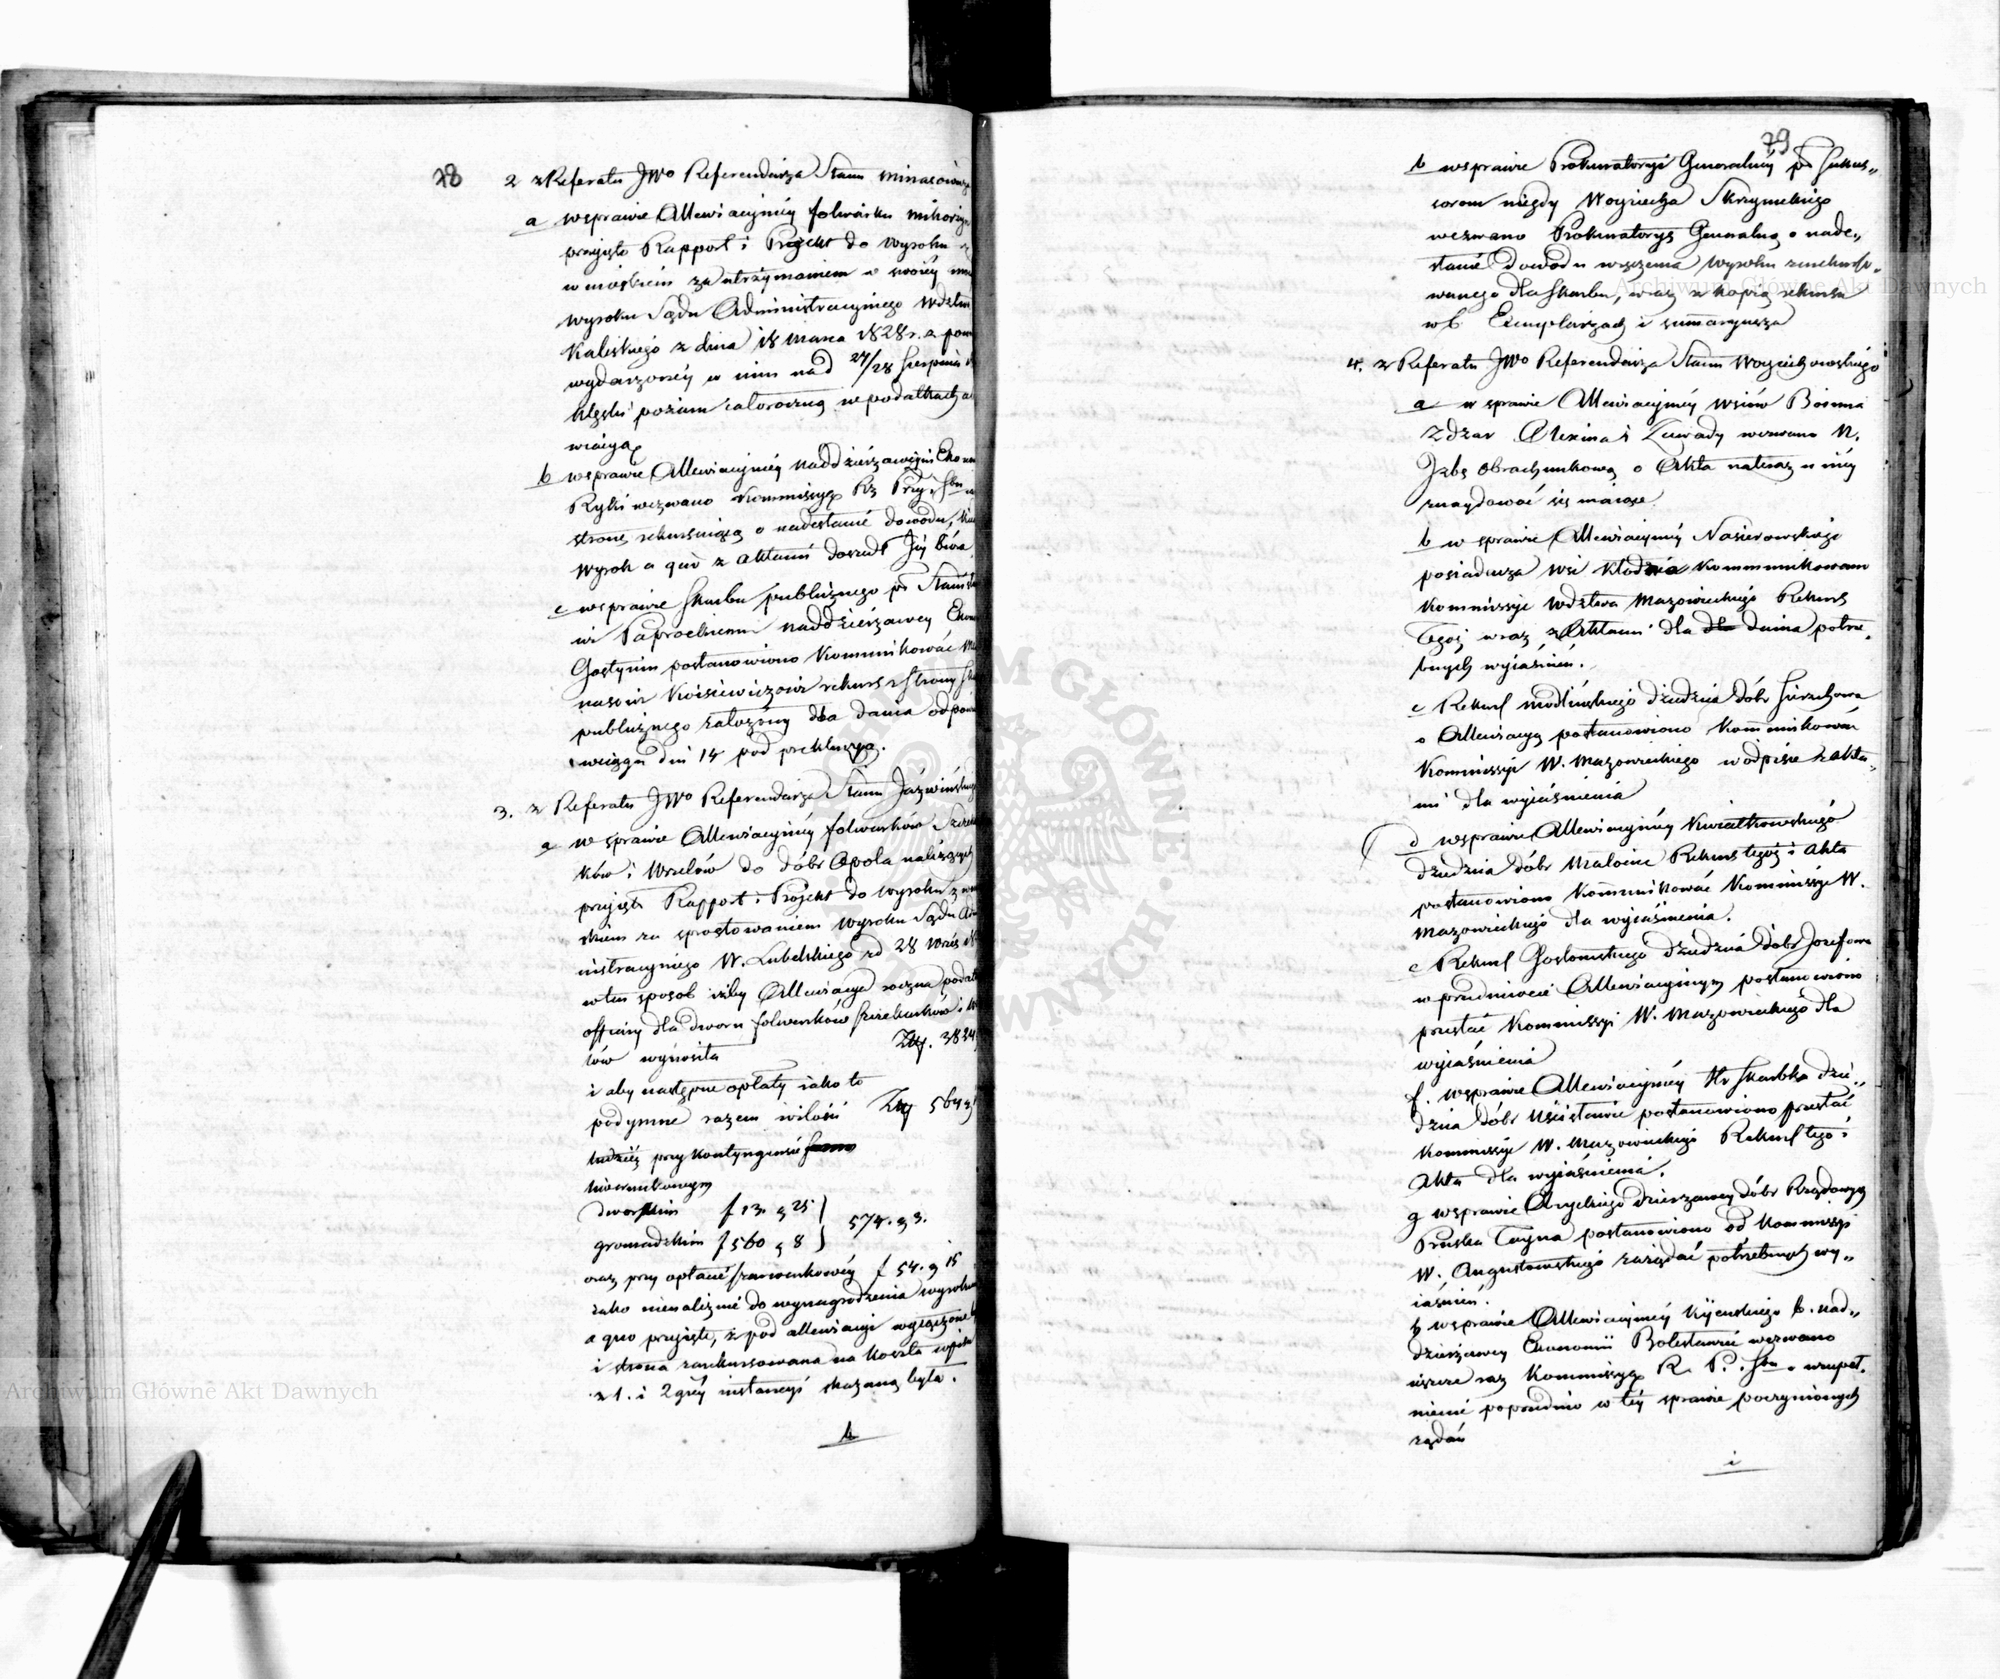 28
2 z Referatu JWo Referendarza Stanu Minasowicza
a w sprawie Allewiacyjnéy folwarku
przyjęto Rapport i Projekt do wyroku
wnioskiem za utrzymaniem w swoiéy
wyroku Sądu Administracyjnego Wdztwa
Kaliskiego z dnia 18 marca 1828 r. a
wydarzonéy w nim nad 27/28 Sierpnia
klęski pożaru całoroczną w podatkach
wiacyą
b w sprawie Allewiacyjnéy naddzierżawcy Ekonomii
Ryki wezwano Kommissyą Rz Przy. i Skar.
stronę rekursuiącą o nadesłanie dowodu,
wyrok a quo z aktami doszedł Jéy Biura
c w sprawie Skarbu publicznego pr Stanisła
wi Paprockiemu naddzierżawcy Ekon
Gostynin postanowiono kommunikować
Kosiewiczowi rekurs z strony
publicznego założony dla dania odpowi
w ciągu dni 14 pod prekluzyą.
3. z Referatu JWo Referendarza Stanu Jaźwińskiego
a w sprawie Allewiacyjnéy folwarków Szczekar
ków i Wrzelów do dóbr Opola należących
przyjęto Rapport i Projekt do wyroku z wnio
skiem za sprostowaniem wyroku Sądu Admi
nistracyjnego W. Lubelskiego z d 28
w ten sposob iżby Allewiacya roczna podatku
ofiary dla dworu folwarków Szczekarków i W
lów wynosiła Złp. 3824
i aby następne opłaty iako to
podymne razem w ilości Złp 564
tudzież przy kontyngensie
liwerunkowym
dworskim f 13. g 25
gromadzkim f 560 g 8 } 574. g 3.
oraz przy opłacie szarwarkowéy f 54. g 15
iako nienależne do wynagrodzenia wyrokiem
a quo przyjęte, z pod allewiacyi wyłączone
i strona zarekursowana na koszta wpisu
z 1. i 2giéy instancyi skazaną była.
b
29
b w sprawie Prokuratoryi Generalnéy pr Sukces„
sorom niegdy Woyciecha Skrzyneckiego
wezwano Prokuratoryą Generalną o nade„
słanie dowodu wręczenia wyroku zarekurso„
wanego dla Skarbu, wraz z kopią rekursu
w 6 Exemplarzach i summaryusza
4. z Referatu JWo Referendarza Stanu Woyciechowskiego
a w sprawie Allewiacyjnéy wsiów Bosinna
Zdzar Olexina i Zawady wezwano N.
Izbę Obrachunkową o Akta natéraz u niéy
znaydować się maiące
b w sprawie Allewiacyjnéy Nasierowskiego
posiadacza wsi Kłodnia kommunikowano
Kommissyi Wdztwa Mazowieckiego Rekurs
Tegoż wraz z Aktami dla dla dania potrze„
bnych wyiaśnień.
c Rekurs Modlińskiego dziedzica dóbr Sierzchowa
o Allewiacyą postanowiono kommunikować
Kommissyi W. Mazowieckiego w odpisie z akta„
mi dla wyiaśnienia
d w sprawie Allewiacyjnéy Kwiatkowskiego
dziedzica dóbr Małoine Rekurs tegoż i akta
postanowiono kommunikować Kommissyi W.
Mazowieckiego dla wyiaśnienia.
e Rekurs Gosłomskiego dziedzica dóbr Jozefowa
w przedmiocie Allewiacyjnym postanowiono
przesłać Kommissyi W. Mazowieckiego dla
wyiaśnienia
f. w sprawie Allewiacyjnéy Hr Skarbka dzie„
dzica dóbr Uścisławic postanowiono przesłać
Kommissyi W. Mazowieckiego Rekurs tego i
Akta dla wyiaśnienia.
g w sprawie Angelkiego dzierzawcy dóbr Rządowych
Pruska Tayna postanowiono od Kommissyi
W. Augustowskiego zażądać potrzebnych wy„
iaśnień.
h w sprawie Allewiacyjnéy Kijeńskiego b. nad„
dzierżawcy Ekonomii Bolesławiec wezwano
ieszcze raz Kommissyą R. P. i Sku. o uzupeł„
nienie poprzednio w téy sprawie poczynionych
żądań
i
Archiwum Główne Akt Dawnych
Archiwum Główne Akt Dawnych
ARCHIWUM GŁÓWNE AKT DAWNYCH